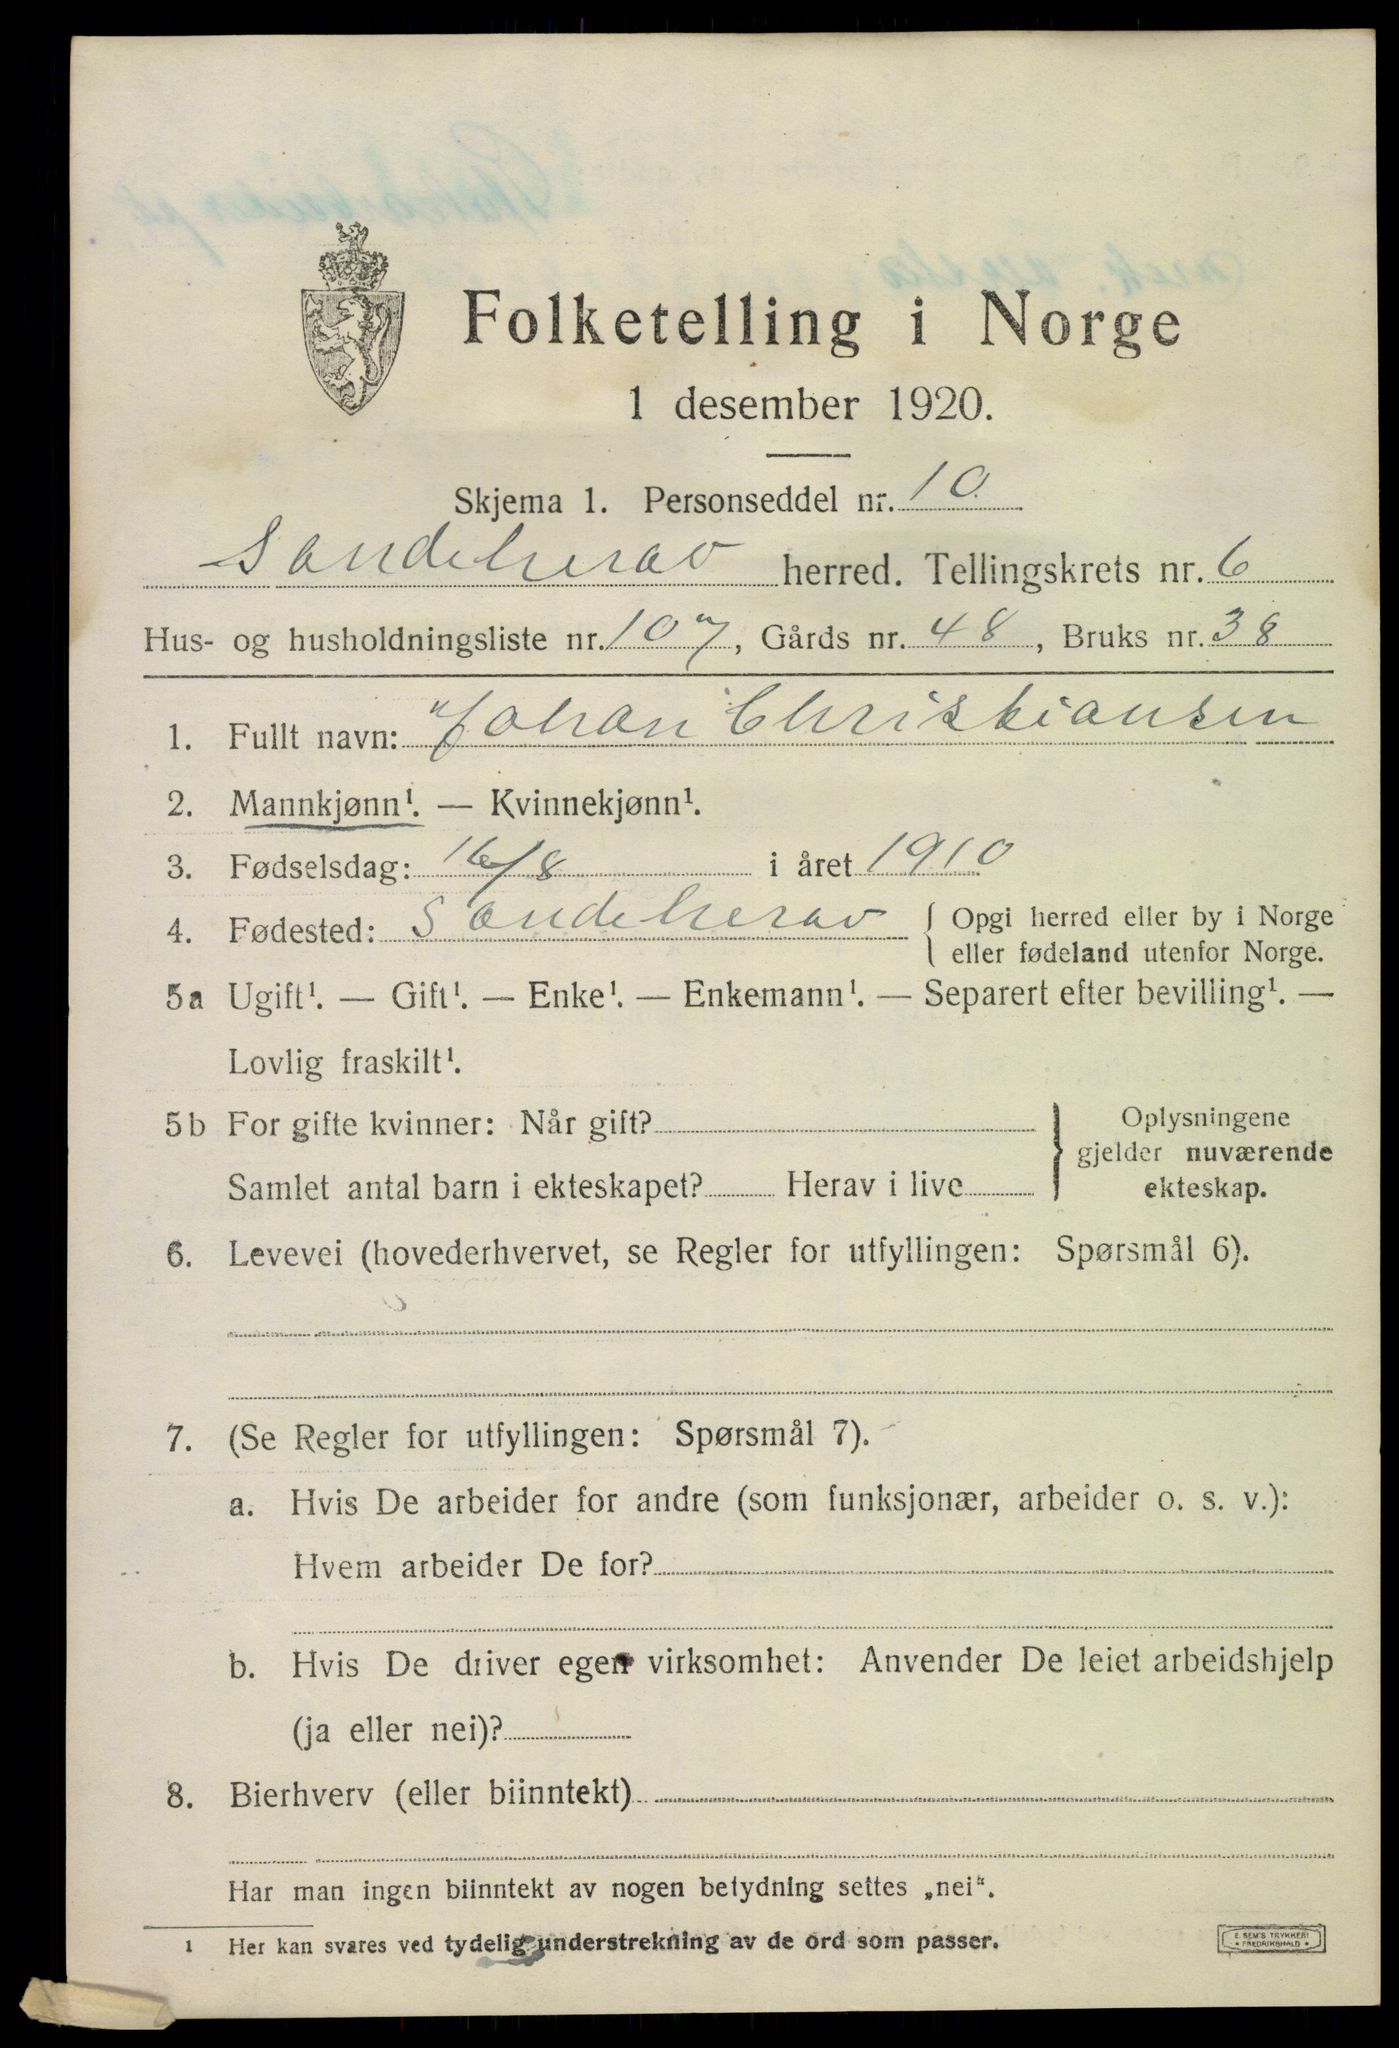 Folketelling i Norge
1 desember 1920.
Skjema 1. Personseddel nr. 10
Sandeherav herred. Tellingskrets nr. 6
Hus- og husholdningsliste nr. 107, Gårds nr. 48, Bruks nr. 38
1. Fullt navn: Johan Christiansen
2. Mannkjønn¹. — Kvinnekjønn¹.
3. Fødselsdag: 16/8 i året 1910
4. Fødested: Sandeherav { Opgi herred eller by i Norge
eller fødeland utenfor Norge.
5a Ugift¹. — Gift¹. — Enke¹. — Enkemann¹. — Separert efter bevilling¹. —
Lovlig fraskilt¹.
5b For gifte kvinner: Når gift?
Samlet antal barn i ekteskapet? Herav i live
} Oplysningene
gjelder nuværende
ekteskap.
6. Levevei (hovederhvervet, se Regler for utfyllingen: Spørsmål 6).
7. (Se Regler for utfyllingen: Spørsmål 7).
a. Hvis De arbeider for andre (som funksjonær, arbeider o. s. v.):
Hvem arbeider De for?
b. Hvis De driver egen virksomhet: Anvender De leiet arbeidshjelp
(ja eller nei)?
8. Bierhverv (eller biinntekt)
Har man ingen biinntekt av nogen betydning settes „nei".
1 Her kan svares ved tydelig understrekning av de ord som passer.
E. SEM'S TRYKKERI
* FREDRIKSHALD *